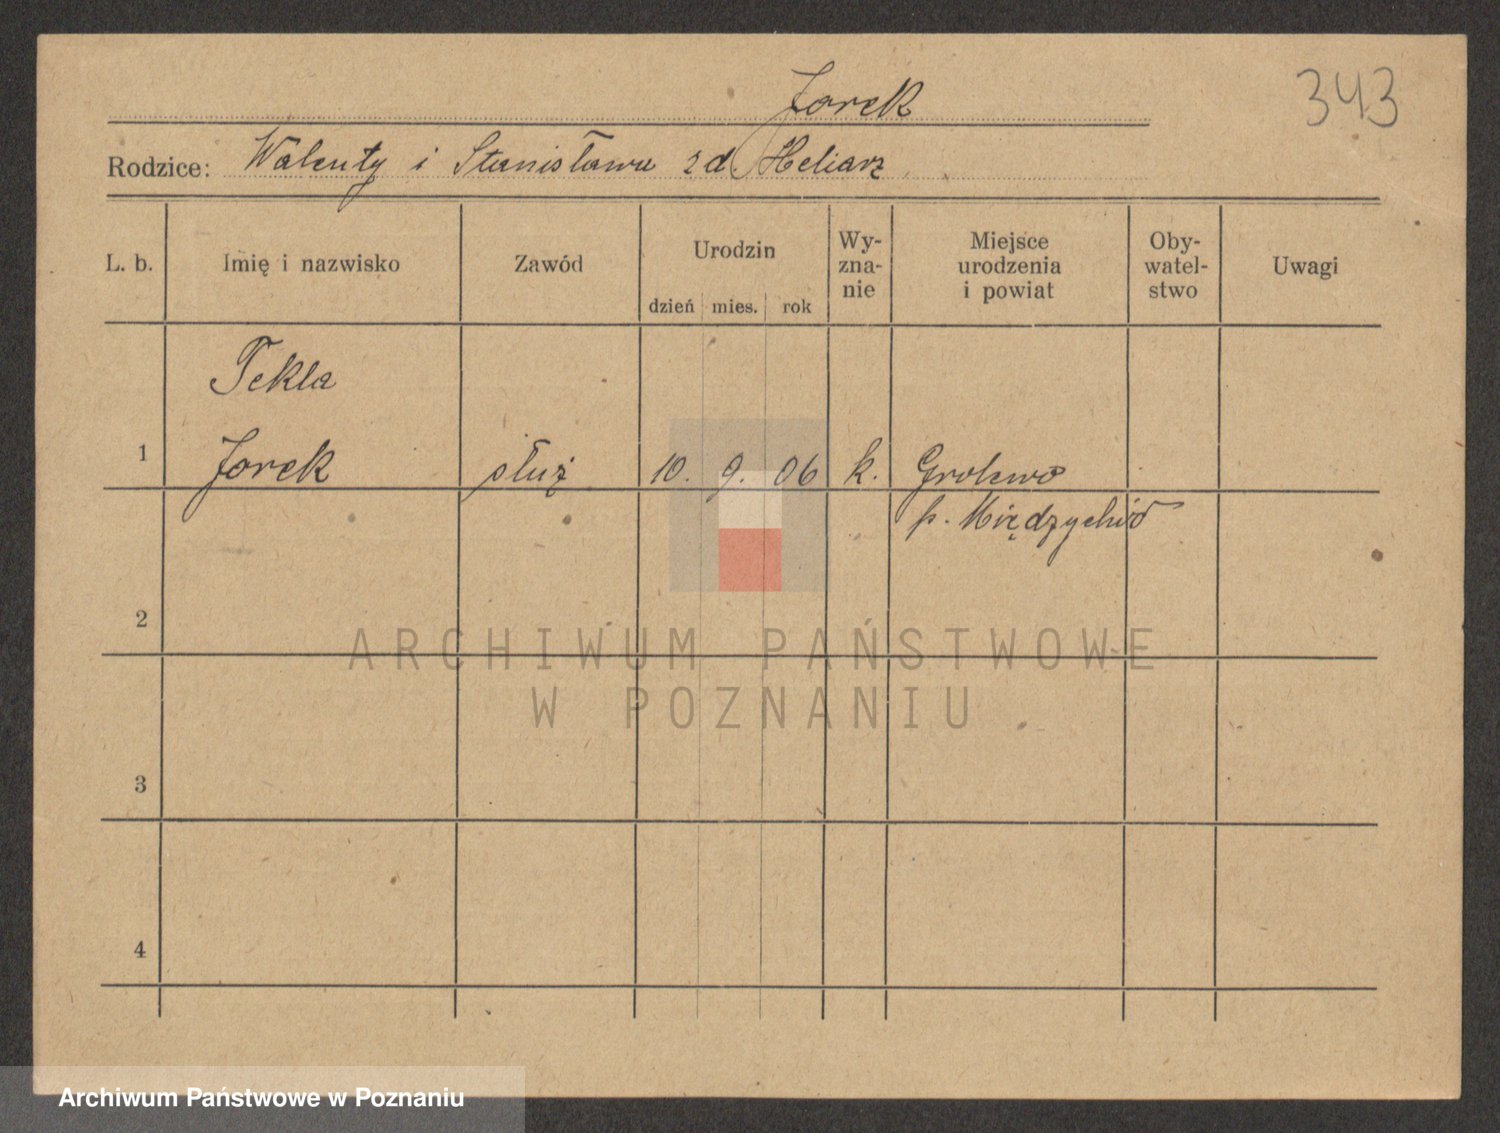 Jorek
343
Rodzice: Walenty i Stanisława zd. Heliasz
L. b. Imię i nazwisko Zawód Urodzin dzień mies. rok Wy-zna-nie Miejsce urodzenia i powiat Oby-watel-stwo Uwagi
Tekla
1 Jorek służ 10. 9. 06 k. Grolewo
p. Międzychód
2
ARCHIWUM PAŃSTWOWE
W POZNANIU
3
4
Archiwum Państwowe w Poznaniu